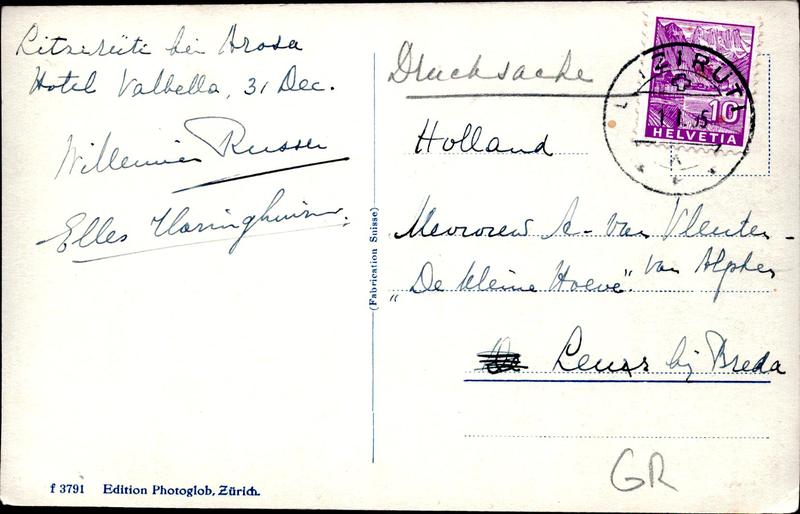 Litzirüti bei Arosa
Hotel Valbella, 31 Dec.
Willemien Russer
Elles
Drucksache
10
HELVETIA
Holland
Mevrouw A- van Vleuten-
van Alphen
"De kleine Hoeve".
Leuss bij Breda
(Fabrication Suisse)
GR
f 3791 Edition Photoglob, Zürich.